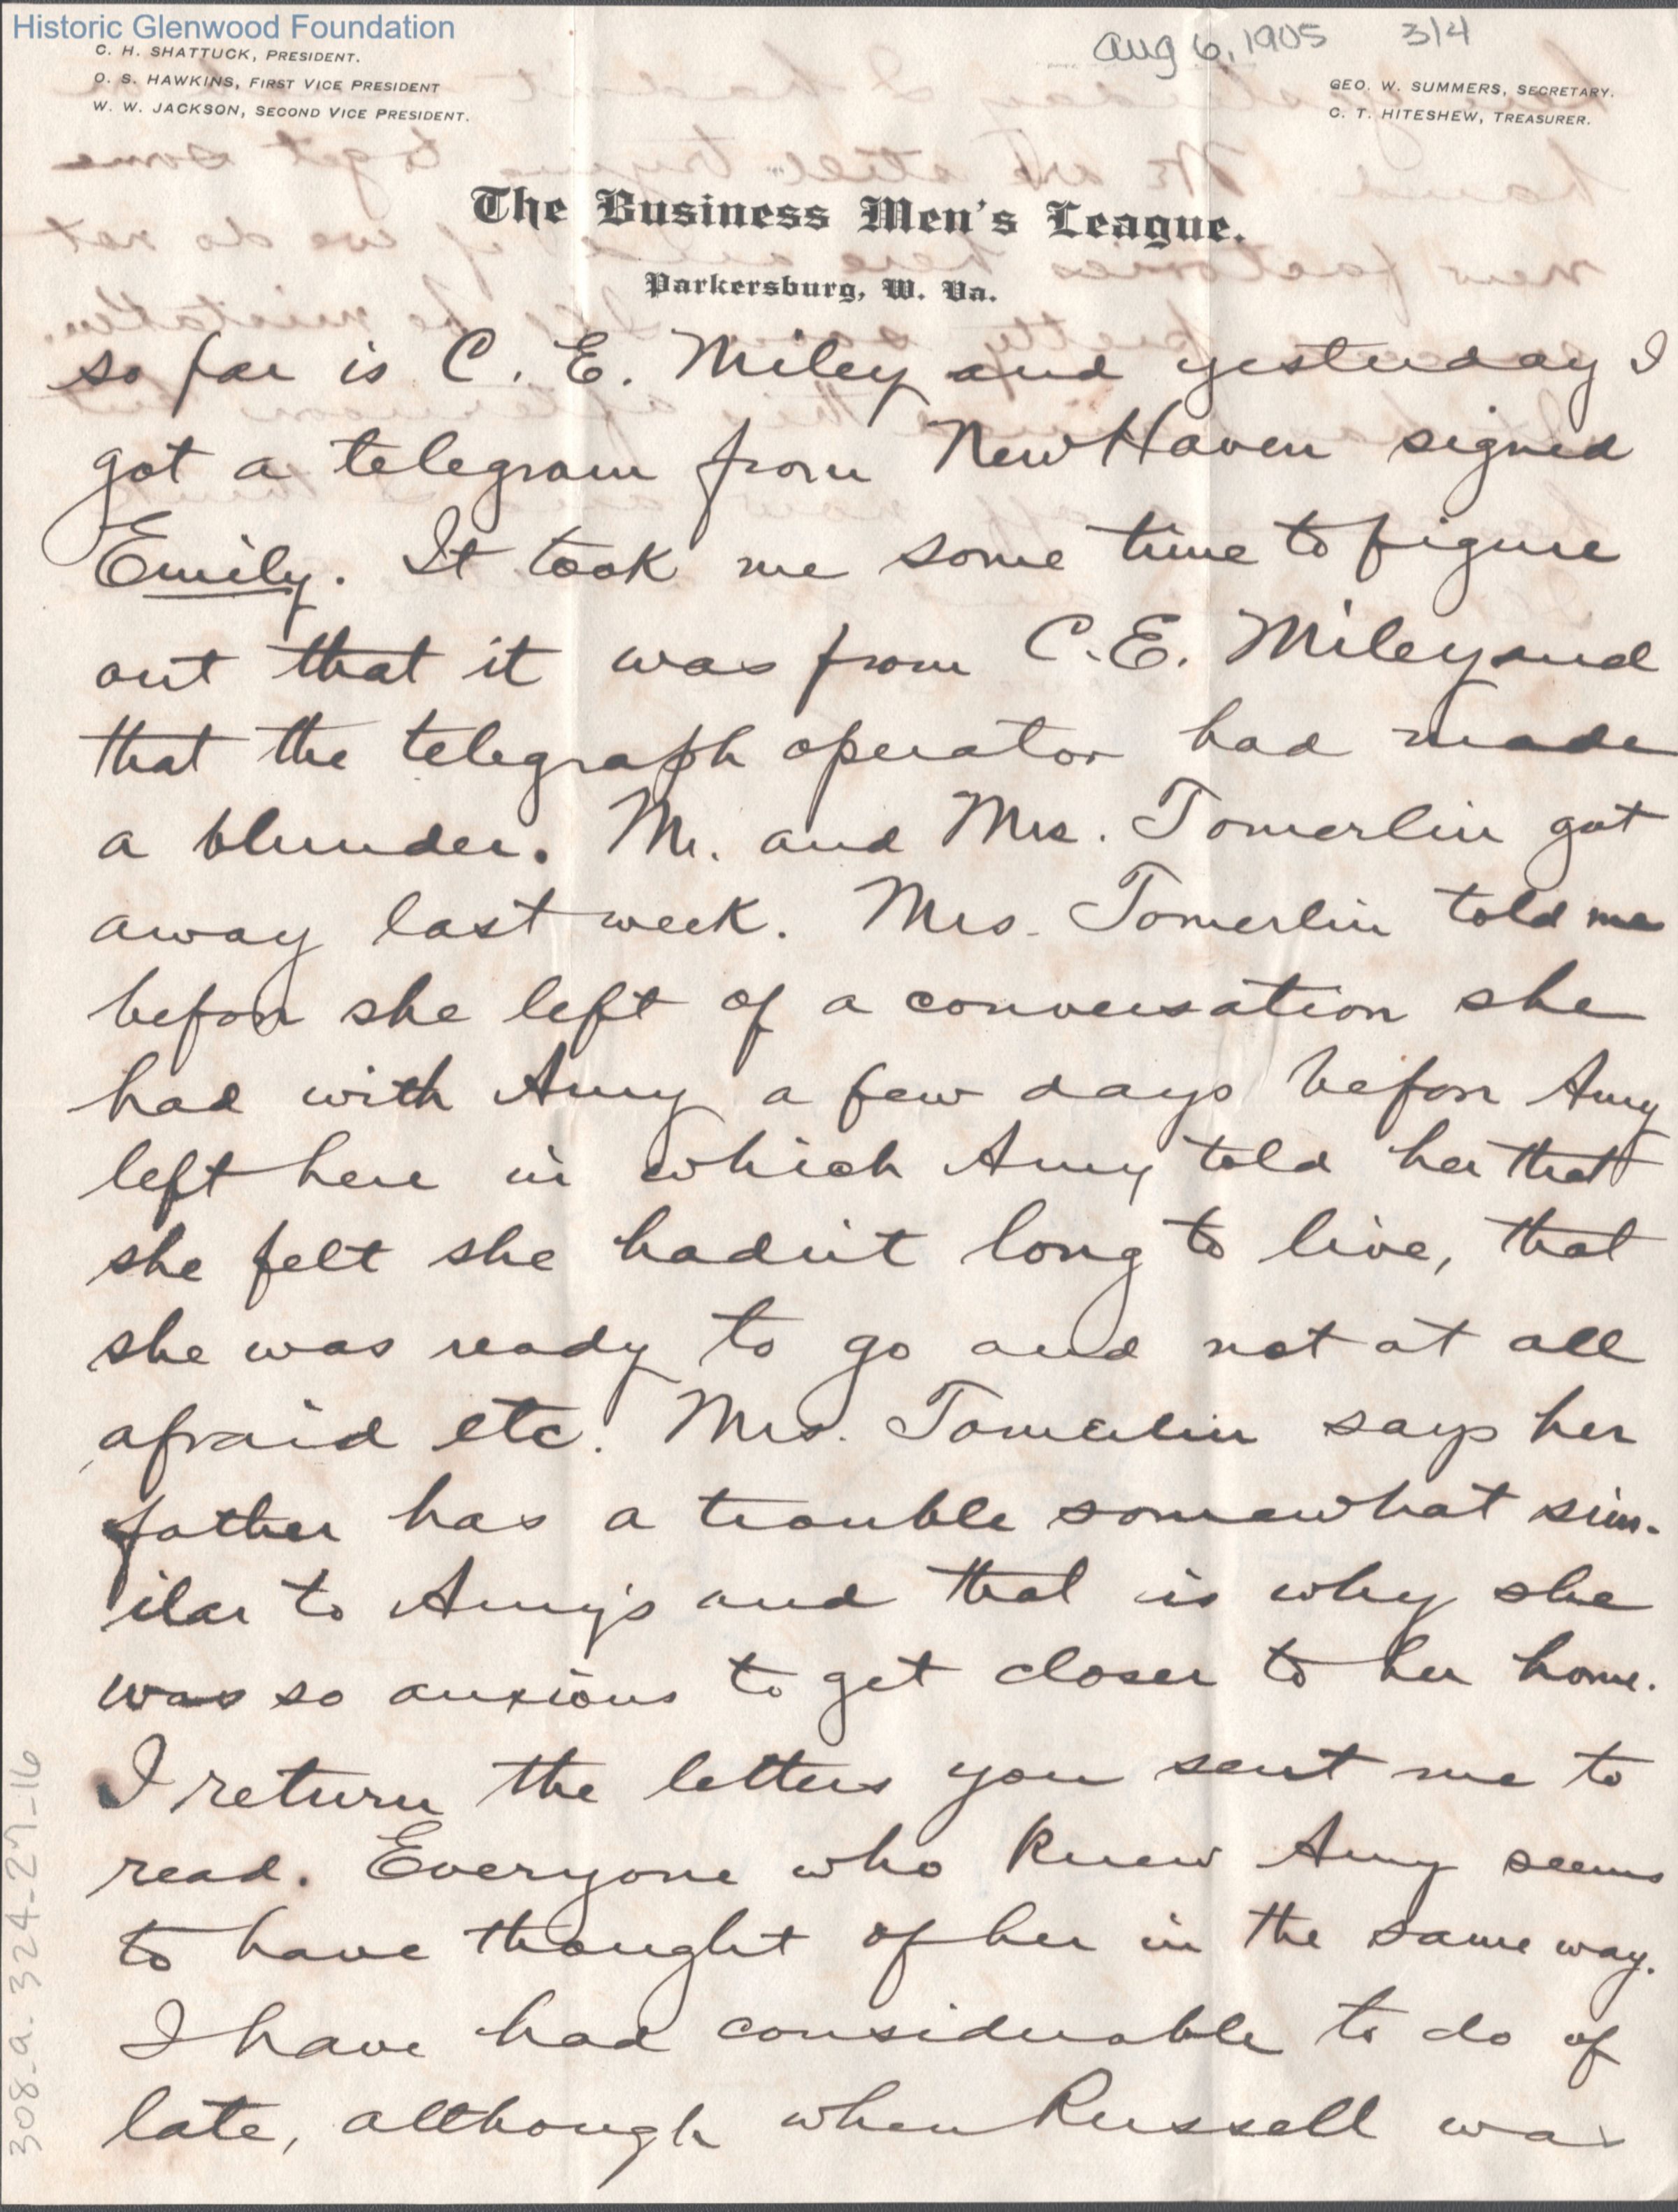 Historic Glenwood Foundation
C. H. SHATTUCK, PRESIDENT.
O. S. HAWKINS, FIRST VICE PRESIDENT
W. W. JACKSON, SECOND VICE PRESIDENT.
Aug 6, 1905 3/4
GEO. W. SUMMERS, SECRETARY.
C. T. HITESHEW, TREASURER.
The Business Men's League.
Parkersburg, W. Va.
so far is C. E. Miley and yesterday I
got a telegram from New Haven signed
Emily. It took me some time to figure
out that it was from C. E. Miley and
that the telegraph operator had made
a blunder. Mr. and Mrs. Tomerlin got
away last week. Mrs. Tomerlin told me
before she left of a conversation she
had with Amy a few days before Amy
left here in which Amy told her that
she felt she hadn't long to live, that
she was ready to go and not at all
afraid etc. Mrs. Tomerlin says her
father has a trouble somewhat sim-
ilar to Amy's and that is why she
was so anxious to get closer to her home.
I return the letters you sent me to
read. Everyone who knew Amy seems
to have thought of her in the same way.
I have had considerable to do of
late, although when Russell was
308-a. 324-27-16